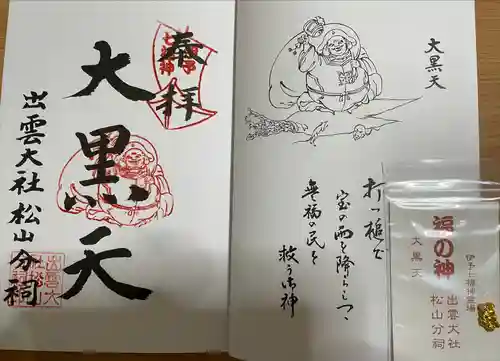 奉拝
伊予
七福神
大黒天
出雲大社松山分祠
大黒天
打つ槌で
宝の雨を降らしつゝ
無福の民を
救う御神
伊予七福神霊場
福の神
大黒天
出雲大社
松山分祠